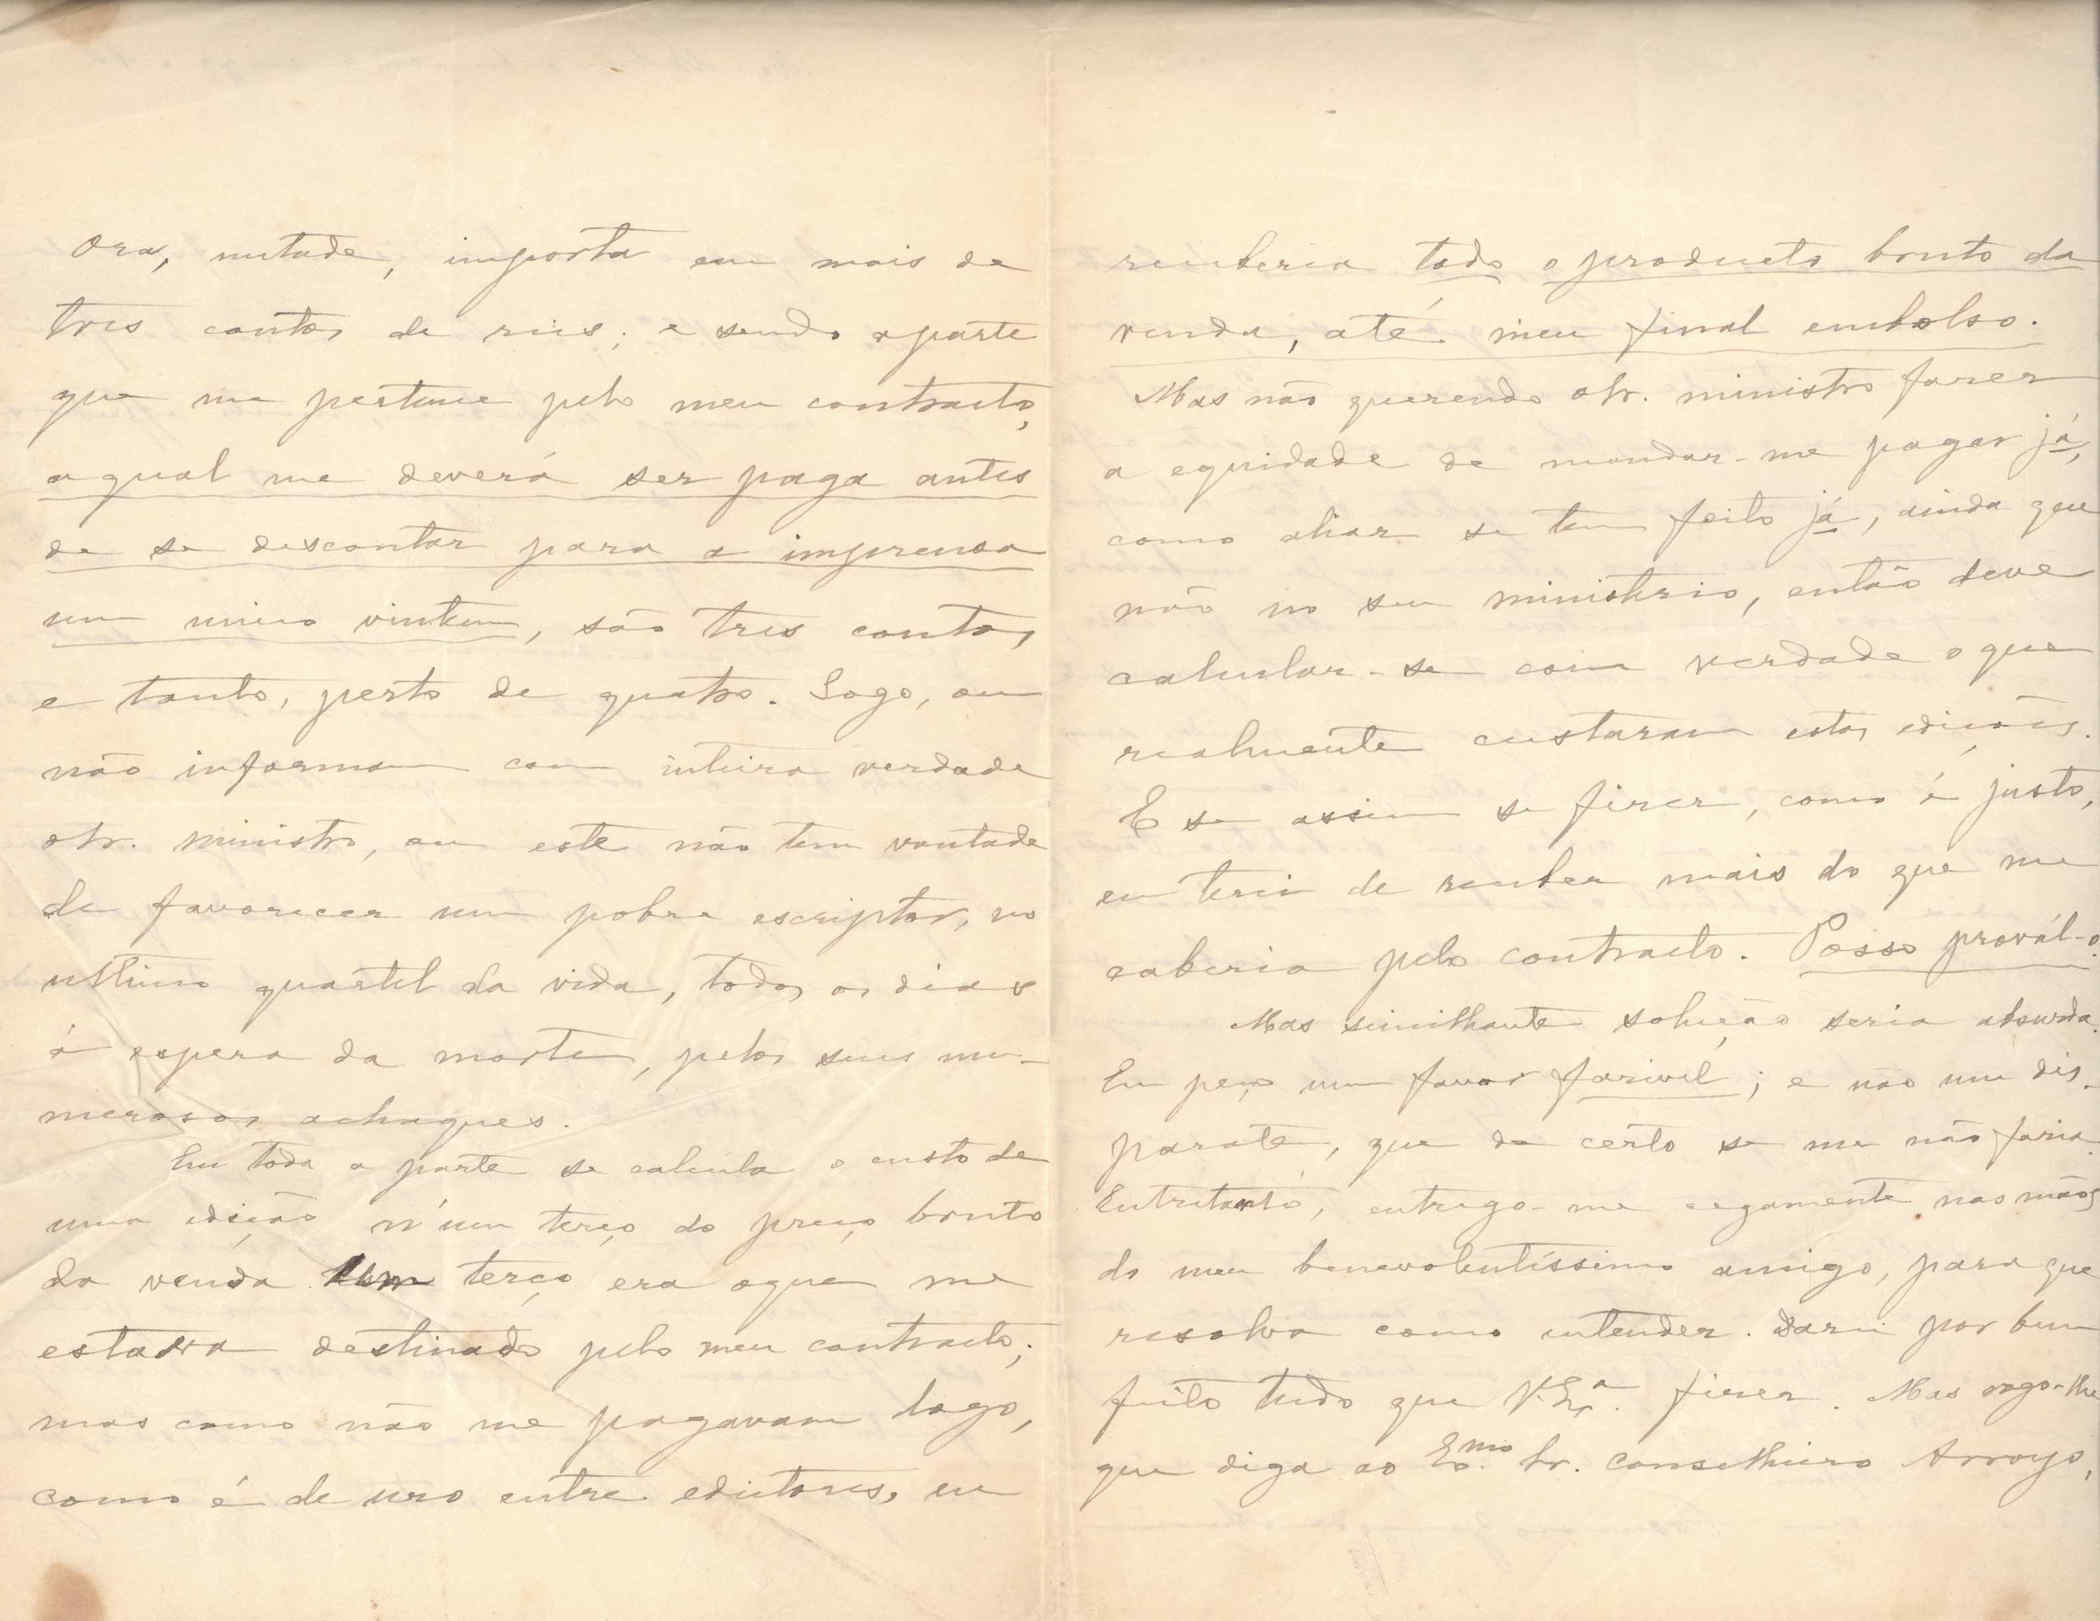 Ora, metade, importa em mais de
tres contos de reis; e sendo a parte
que me pertence pelo meu contracto,
a qual me deverá ser paga antes
de se descontar para a imprensa
um unico vintem, são tres contos
e tanto, perto de quatro. Logo, ou
não informam com inteira verdade
o sr. ministro, ou este não tem vontade
de favorecer um pobre escriptor, no
ultimo quartel da vida, todos os dias
á espera da morte, pelos seus nu-
merosos achaques.
Em toda a parte se calcula o custo de
uma edição n'um terço do preço bruto
da venda. Um terço era o que me
estava destinado pelo meu contracto;
mas como não me pagavam logo,
como é de uso entre editores, eu
receberia todo o producto bruto da
venda, até meu final embolso.
Mas não querendo o sr. ministro fazer
a equidade de mandar-me pagar já,
como aliaz se tem feito já, ainda que
não no seu ministerio, então deve
calcular-se com verdade o que
realmente custaram estas edições.
E se assim se fizer, como é justo,
eu terei de receber mais do que me
caberia pelo contracto. Posso provál-o.
Mas similhante solução seria absurda.
Eu peço um favor fazivel; e não um dis-
parate, que de certo se me não faria.
Entretanto, entrego-me cegamente nas mãos
do meu benevolentíssimo amigo, para que
resolva como entender. Darei por bem
feito tudo que V. Ex.ª fizer. Mas rogo-lhe
que diga ao Ex.mo Sr. conselheiro Arroyo,